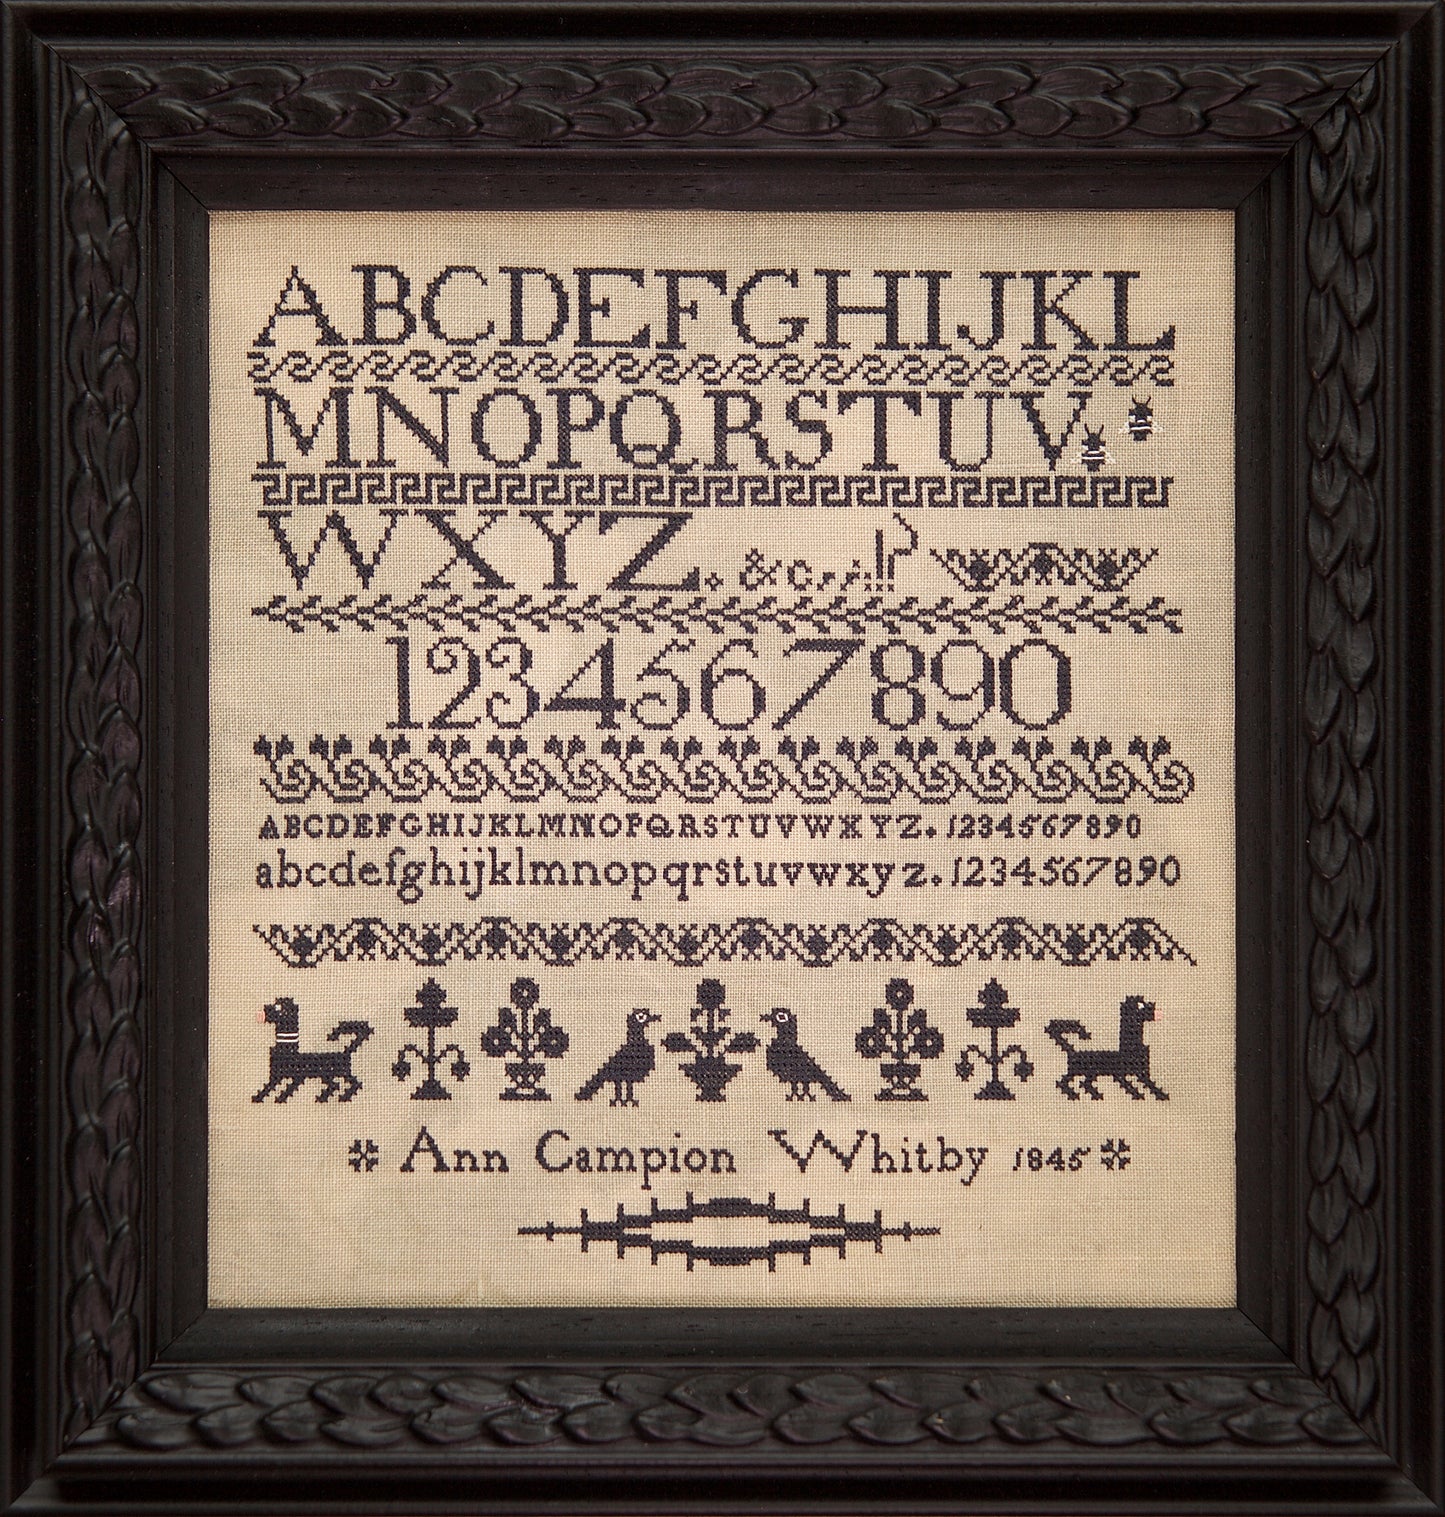 ABCDEFGHIJKL
MNOPQRSTUV
WXYZ. &c,;.:!?
1234567890
ABCDEFGHIJKLMNOPQRSTUVWXYZ. 1234567890
abcdefghijklmnopqrstuvwxyz. 1234567890
Ann Campion Whitby 1845